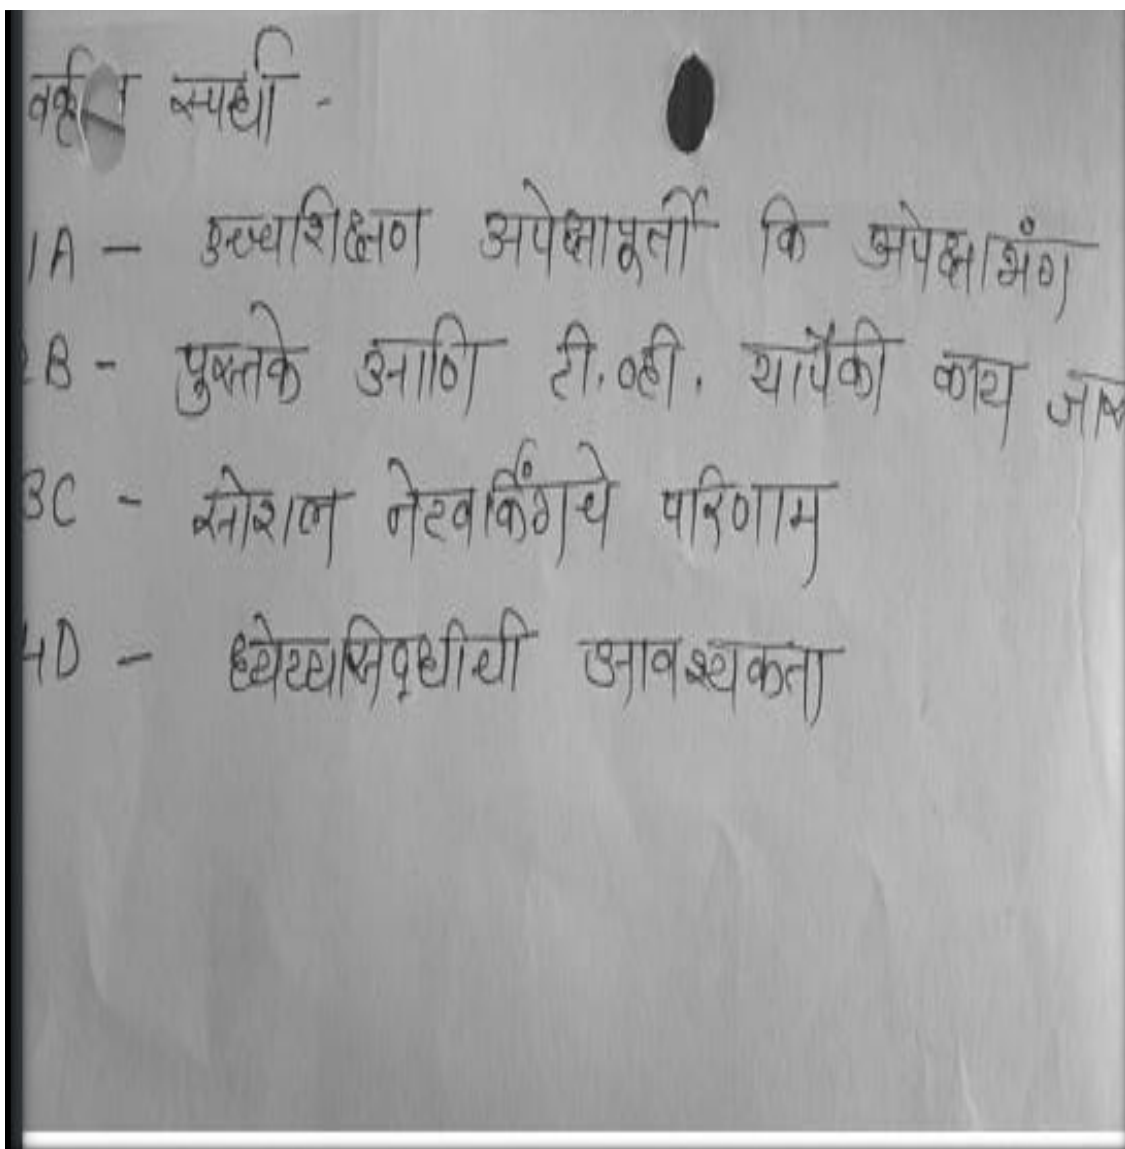 स्पर्धा -
1A - उच्चशिक्षण अपेक्षापूर्ती कि अपेक्षाभंग
2B - पुस्तके आणि टी.व्ही. यापैकी काय
3C - सोशल नेटवर्किंगचे परिणाम
4D - ध्येय्यसिद्धीची आवश्यकता